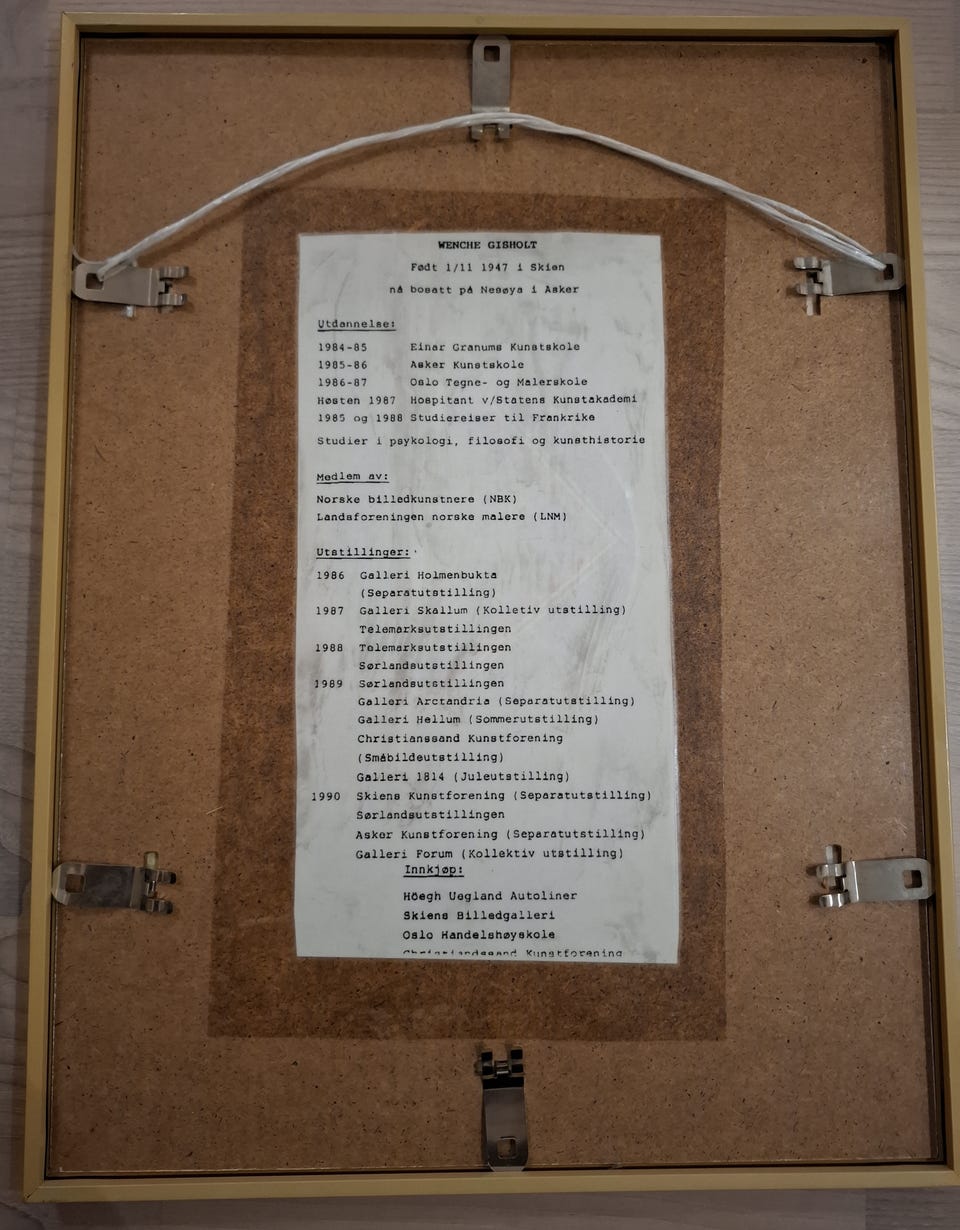 WENCHE GISHOLT
Født 1/11 1947 i Skien
nå bosatt på Nesøya i Asker
Utdannelse:
1984-85 Einar Granums Kunstskole
1985-86 Asker Kunstskole
1986-87 Oslo Tegne- og Malerskole
Høsten 1987 Hospitant v/Statens Kunstakademi
1985 og 1988 Studiereiser til Frankrike
Studier i psykologi, filosofi og kunsthistorie
Medlem av:
Norske billedkunstnere (NBK)
Landsforeningen norske malere (LNM)
Utstillinger:
1986 Galleri Holmenbukta
(Separatutstilling)
1987 Galleri Skallum (Kolletiv utstilling)
Telemarksutstillingen
1988 Telemarksutstillingen
Sørlandsutstillingen
1989 Sørlandsutstillingen
Galleri Arctandria (Separatutstilling)
Galleri Hellum (Sommerutstilling)
Christianssand Kunstforening
(Småbildeutstilling)
Galleri 1814 (Juleutstilling)
1990 Skiens Kunstforening (Separatutstilling)
Sørlandsutstillingen
Asker Kunstforening (Separatutstilling)
Galleri Forum (Kollektiv utstilling)
Innkjøp:
Höegh Uegland Autoliner
Skiens Billedgalleri
Oslo Handelshøyskole
Christianssand Kunstforening